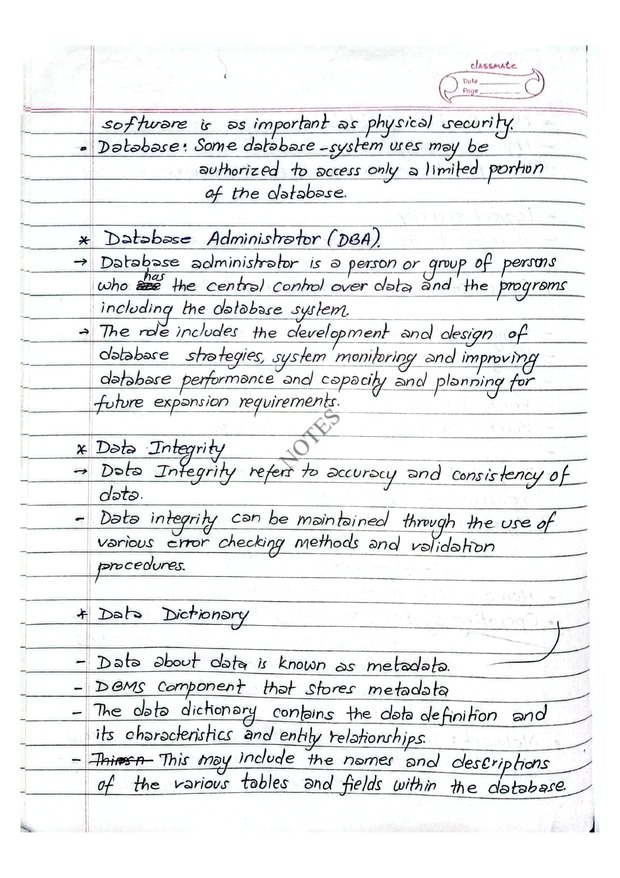 classmate
Date
Page
software is as important as physical security.
• Database: Some database-system uses may be
authorized to access only a limited portion
of the database.
* Database Administrator (DBA).
→ Database administrator is a person or group of persons
who has the central control over data and the programs
including the database system.
→ The role includes the development and design of
database strategies, system monitoring and improving
database performance and capacity and planning for
future expansion requirements.
NOTES
* Data Integrity
→ Data Integrity refers to accuracy and consistency of
data.
- Data integrity can be maintained through the use of
various error checking methods and validation
procedures.
* Data Dictionary
- Data about data is known as metadata.
- DBMS component that stores metadata
- The data dictionary contains the data definition and
its characteristics and entity relationships.
- This may include the names and descriptions
of the various tables and fields within the database.